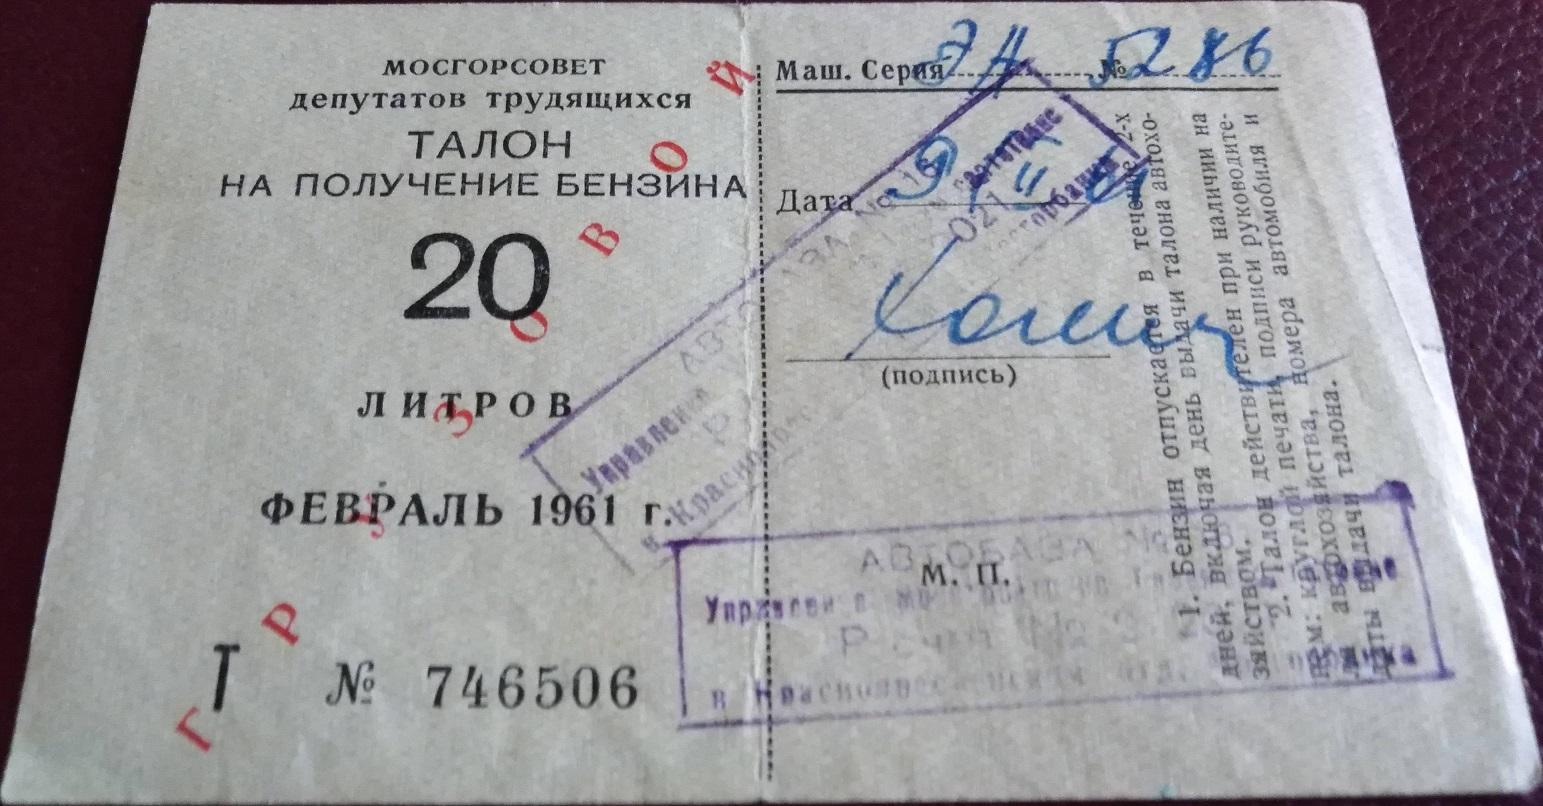 МОСГОРСОВЕТ
депутатов трудящихся
ТАЛОН
НА ПОЛУЧЕНИЕ БЕНЗИНА
20
ЛИТРОВ
ФЕВРАЛЬ 1961 г.
Т № 746506
ГРУЗОВОЙ
Маш. Серия ЭН № 5286
Дата
(подпись)
М. П.
1. Бензин отпускается в течение 2-х
дней, включая день выдачи талона автохо-
зяйством.
2. Талон действителен при наличии на
нем: круглой печати, подписи руководите-
ля автохозяйства, номера автомобиля и
даты выдачи талона.
АВТОБАЗА № 16
Управления
Р
в Красно
021
АВТОБАЗА №
в Краснопресненском отд.